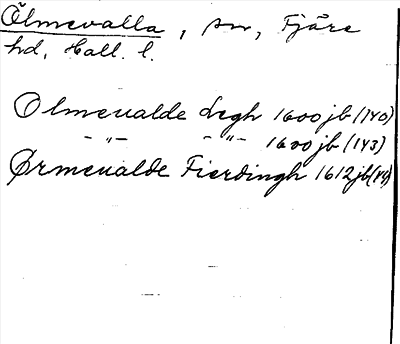 Ölmevalla, sn, Fjäre
hd, Hall. l.
Olmeualde Legh 1600 jb (140)
- " - - " - 1600 jb (143)
Ørmeualde Fierdingh 1612 jb